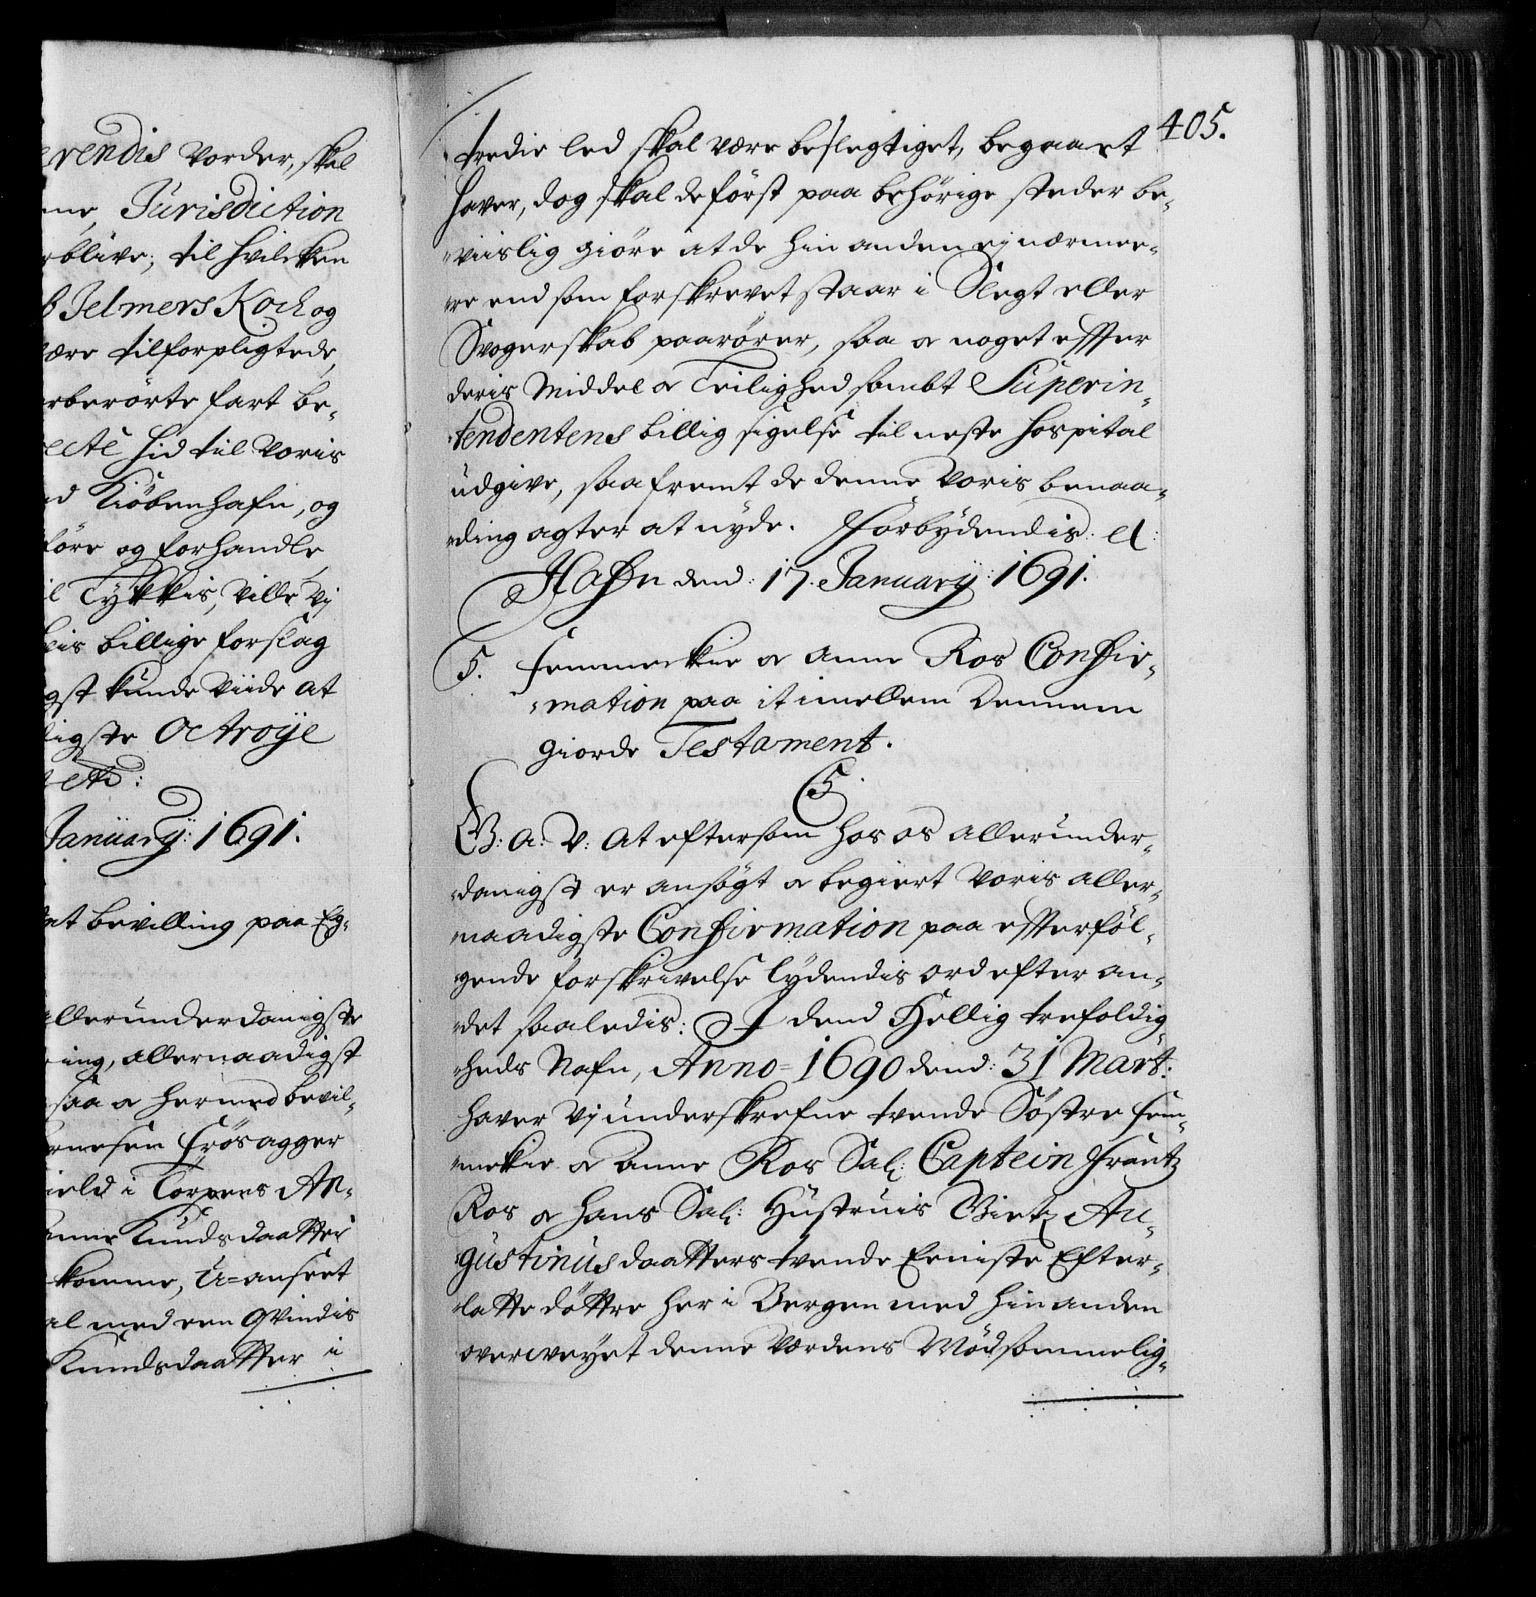 rendis vorder, skal
Jurisdiction
blive; til hvilcken
Jelmers Koch og
være tilforpligtede,
erberørte fart be-
hid til Voris
Kiöbenhafn, og
före og forhandle
Tÿkkis, ville Vj
billige forslag
gst kunde viide at
ligste Octroÿe
etc:
Januarÿ: 1691.
bevilling paa Eg-
allerunderdanigste
ing, allernaadigst
saa & hermed bevil-
Frösagger
i Torpens An-
Knudsdaatter
komme, U=anseet
med een Qvindis
Knudsdaatter i
405.
tredie led skal være beslegtiget, begaaet
haver, dog skal de först paa behörige steder be-
-viislig giöre at de hin anden ej nærmee-
-re end som forskrevet staar i Slegt eller
Svogerskab paarörer, saa & noget effter
deris Middel & Leilighed sambt Superin-
-tendentens billig sigelse til neste Hospital
udgive, saafremt de denne Voris benaa-
-ding agter at nyde. Forbÿdendis. et:
Hafn dend: 17. Januarÿ: 1691.
5. Femmeckie & Anne Ros Confir-
-mation paa it imellem Dennem
giorde Testament.
5.
G: A: V: At eftersom hos os allerunder-
-danigst er ansögt & begiert Voris aller-
naadigste Confirmation paa effterföl-
gende forskrivelse lÿdendis ord efter an-
-det saaledis: I dend Hellig trefoldig-
-heds Nafn, Anno= 1690 dend: 31 Mart:
haver Vj underskrefne tvende Söstre Fem-
-mekie & Anne Ros Sal: Captein Frantz
Ros & hans Sal: Hustruis Birtz Au-
-gustinus daatters tvende Eeniste Efter-
-latte döttre her i Bergen med hin anden
overveÿet denne Verdens Mödsommelig-